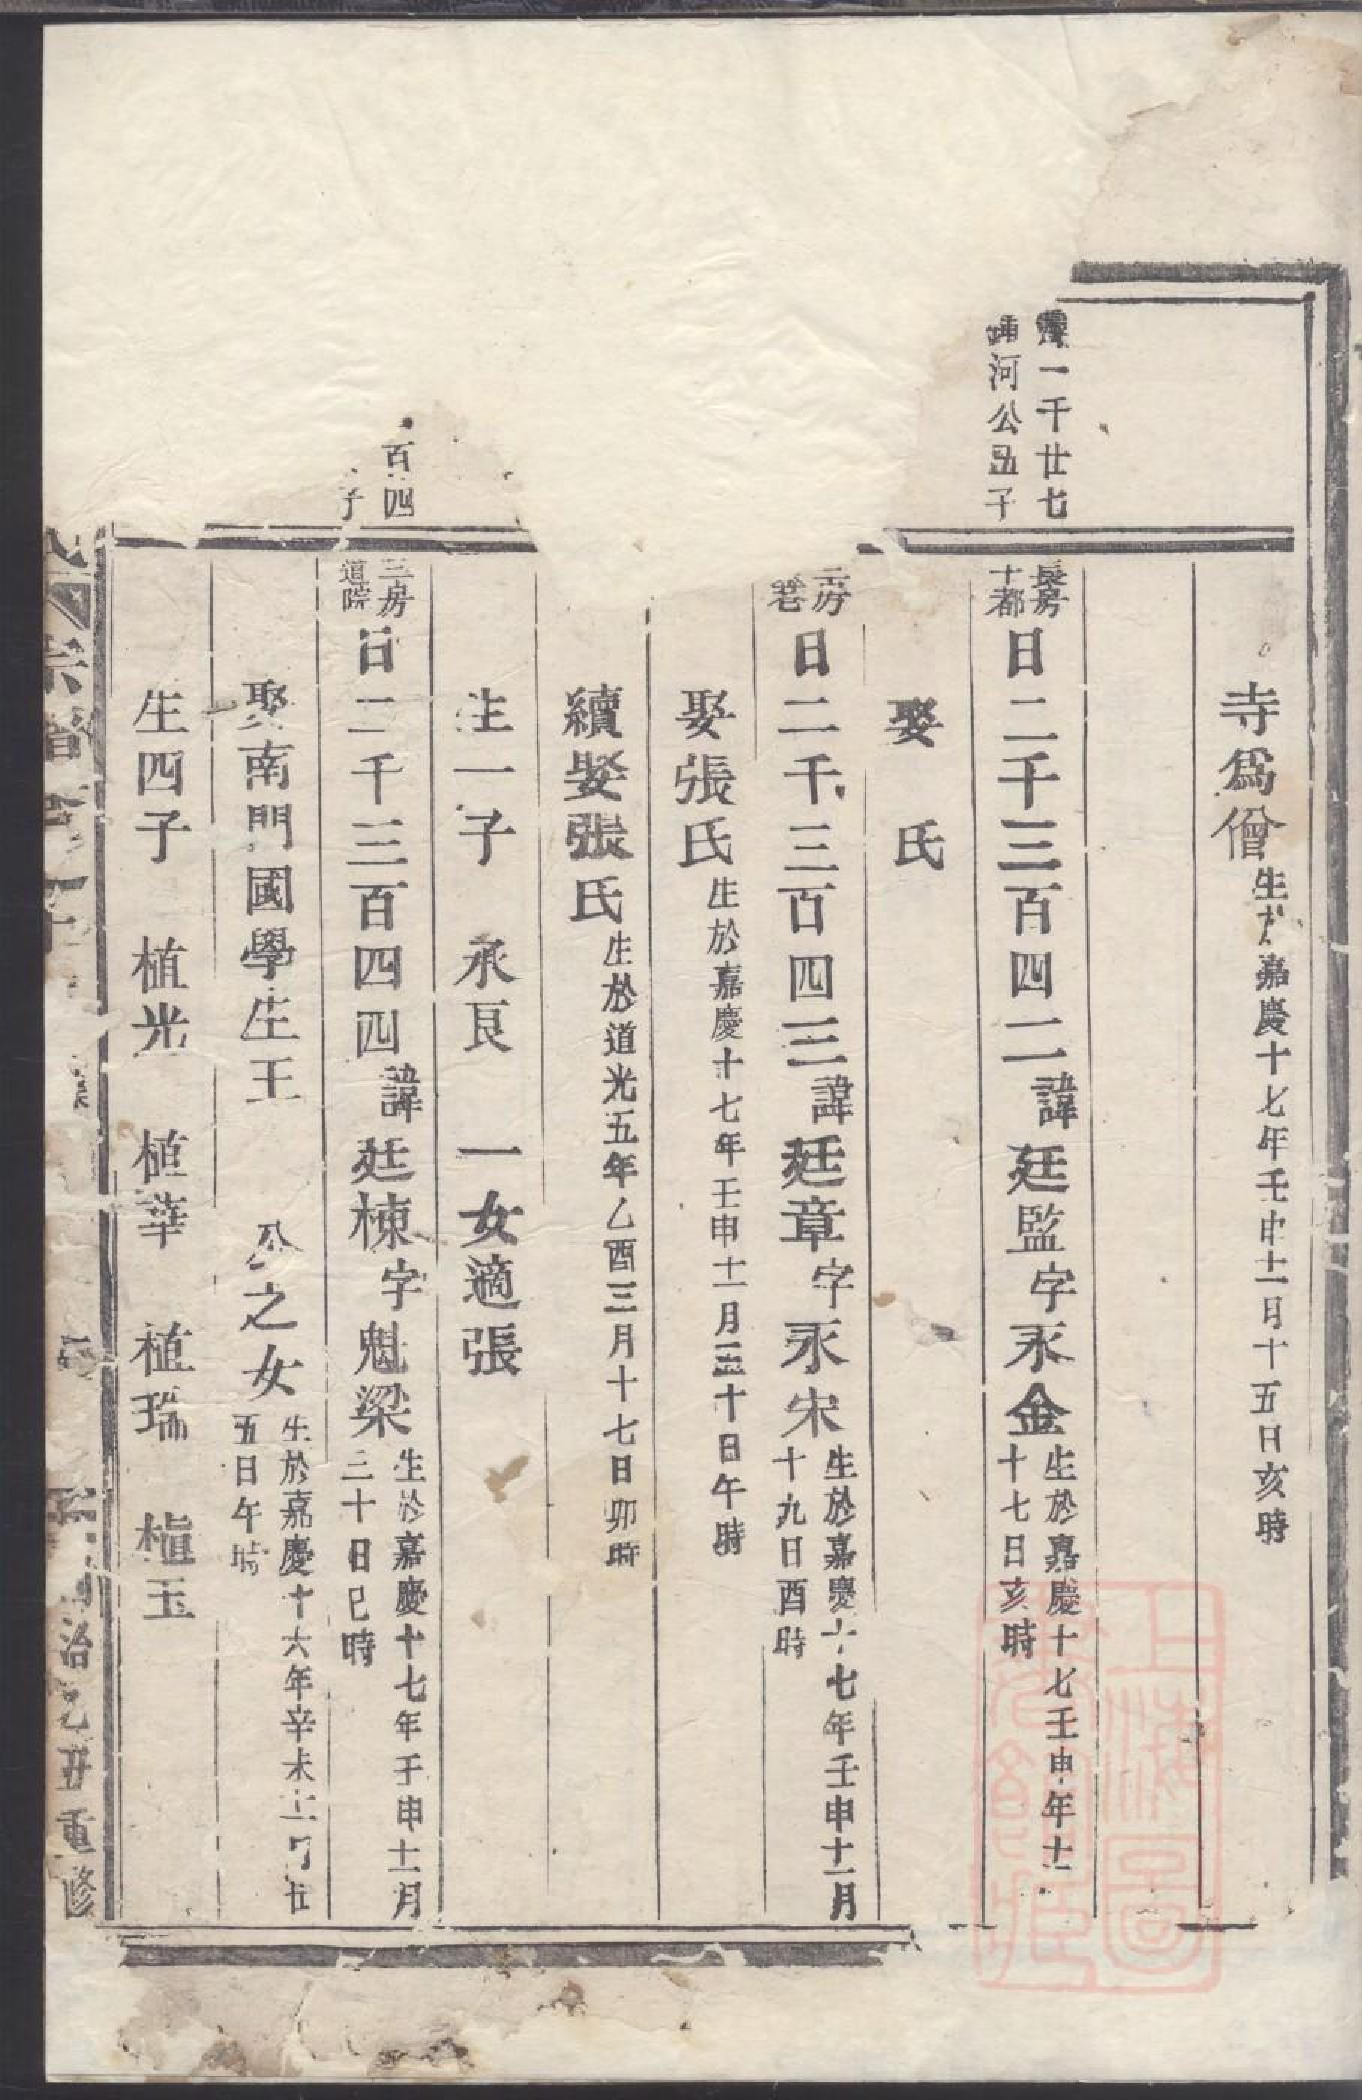 寺為僧生於嘉慶十七年壬申十一月十五日亥時
一千廿七
河公五子
長房
十都
日二千三百四二諱廷監字永金生於嘉慶十七壬申年十一
十七日亥時
娶　氏
二房
日二千三百四三諱廷章字永宋生於嘉慶十七年壬申十一月
十九日酉時
娶張氏生於嘉慶十七年壬申十一月三十日午時
續娶張氏生於道光五年乙酉三月十七日卯時
生一子　承良　一女適張
百四
子
三房
道院
日二千三百四四諱廷棟字魁梁生於嘉慶十七年壬申十一月
三十日巳時
娶南門國學生王　公之女生於嘉慶十六年辛未十二月廿
五日午時
生四子　植光　植華　植瑞　植玉
宗譜
治乙丑重修
上海圖書館藏